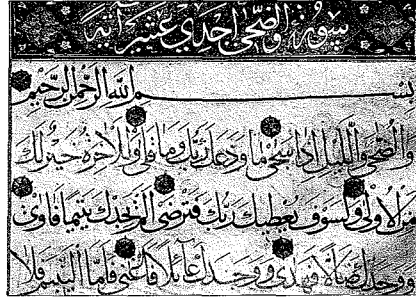 سورة والضحى احدى عشر آية
بسم الله الرحمن الرحيم
والضحى والليل اذا سجى ما ودعك ربك وما قلى وللآخرة خير لك
من الاولى ولسوف يعطيك ربك فترضى الم يجدك يتيما فآوى
ووجدك ضالا فهدى ووجدك عائلا فاغنى فاما اليتيم فلا